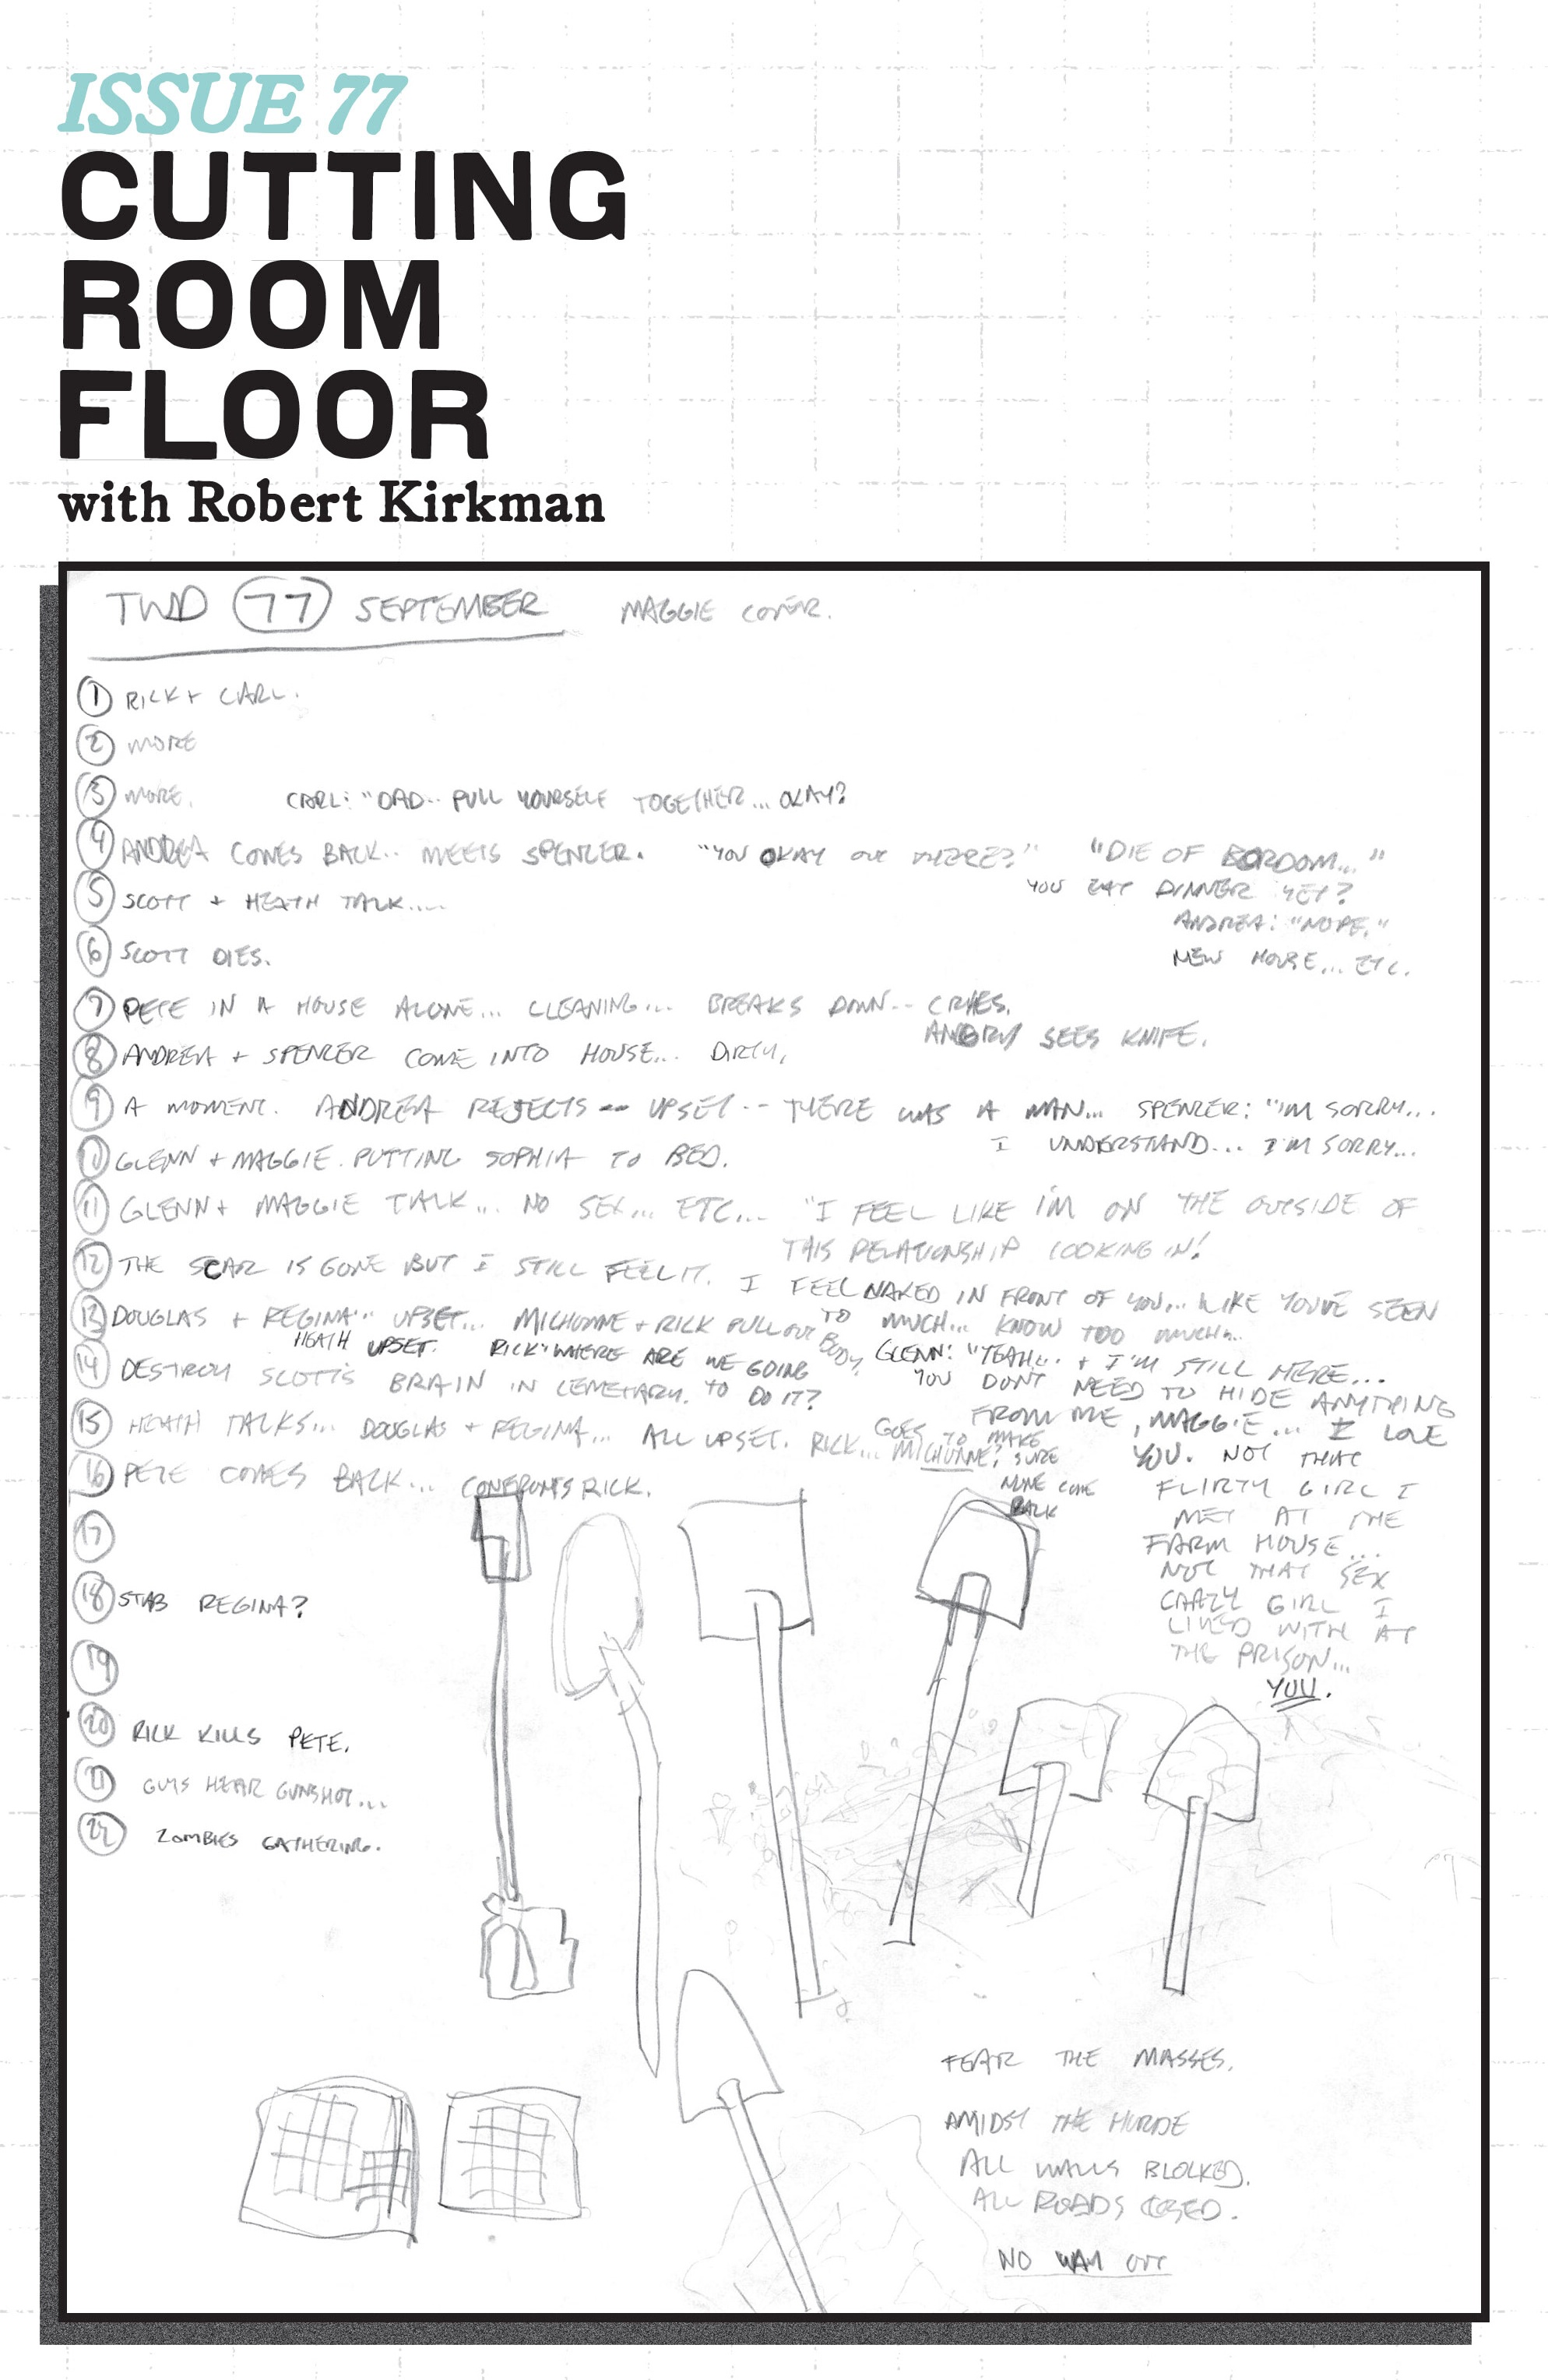 ISSUE 77
CUTTING
ROOM
FLOOR
with Robert Kirkman
TWD 77 SEPTEMBER MAGGIE COVER.
1 RICK + CARL.
2 MORE
3 MORE. CARL: "DAD.. PULL YOURSELF TOGETHER... OKAY?
4 ANDREA COMES BACK.. MEETS SPENCER. "YOU OKAY OUT THERE?" "DIE OF BORDOM..."
YOU EAT DINNER YET?
ANDREA: "NOPE."
NEW HOUSE... ETC.
5 SCOTT + HEATH TALK....
6 SCOTT DIES.
7 PETE IN A HOUSE ALONE... CLEANING... BREAKS DOWN-- CRIES.
ANGRY SEES KNIFE.
8 ANDREA + SPENCER COME INTO HOUSE... DIRTY,
9 A MOMENT. ANDREA REJECTS -- UPSET -- THERE WAS A MAN... SPENCER: "I'M SORRY...
I UNDERSTAND... I'M SORRY...
10 GLENN + MAGGIE. PUTTING SOPHIA TO BED.
11 GLENN + MAGGIE TALK... NO SEX... ETC... "I FEEL LIKE I'M ON THE OUTSIDE OF
THIS RELATIONSHIP LOOKING IN!
12 THE SCAR IS GONE BUT I STILL FEEL IT. I FEEL NAKED IN FRONT OF YOU... LIKE YOU'VE SEEN
TO MUCH... KNOW TOO MUCH...
13 DOUGLAS + REGINA... UPSET... MICHONNE + RICK PULL OUT BODY.
HEATH UPSET. RICK: "WHERE ARE WE GOING
TO DO IT?
14 DESTROY SCOTT'S BRAIN IN CEMETARY.
GLENN: "YEAH... + I'M STILL HERE...
YOU DON'T NEED TO HIDE ANYTHING
FROM ME, MAGGIE... I LOVE
YOU. NOT THAT
FLIRTY GIRL I
MET AT THE
FARM HOUSE...
NOT THAT SEX
CRAZY GIRL I
LIVED WITH AT
THE PRISON...
YOU.
15 HEATH TALKS... DOUGLAS + REGINA... ALL UPSET. RICK... MICHONNE?
GOES TO MAKE
SURE
NONE COME
BACK
16 PETE COMES BACK... CONFRONTS RICK.
17
18 STAB REGINA?
19
20 RICK KILLS PETE.
21 GUYS HEAR GUNSHOT...
22 ZOMBIES GATHERING.
FEAR THE MASSES.
AMIDST THE HORDE
ALL WALLS BLOCKED.
ALL ROADS CLOSED.
NO WAY OUT